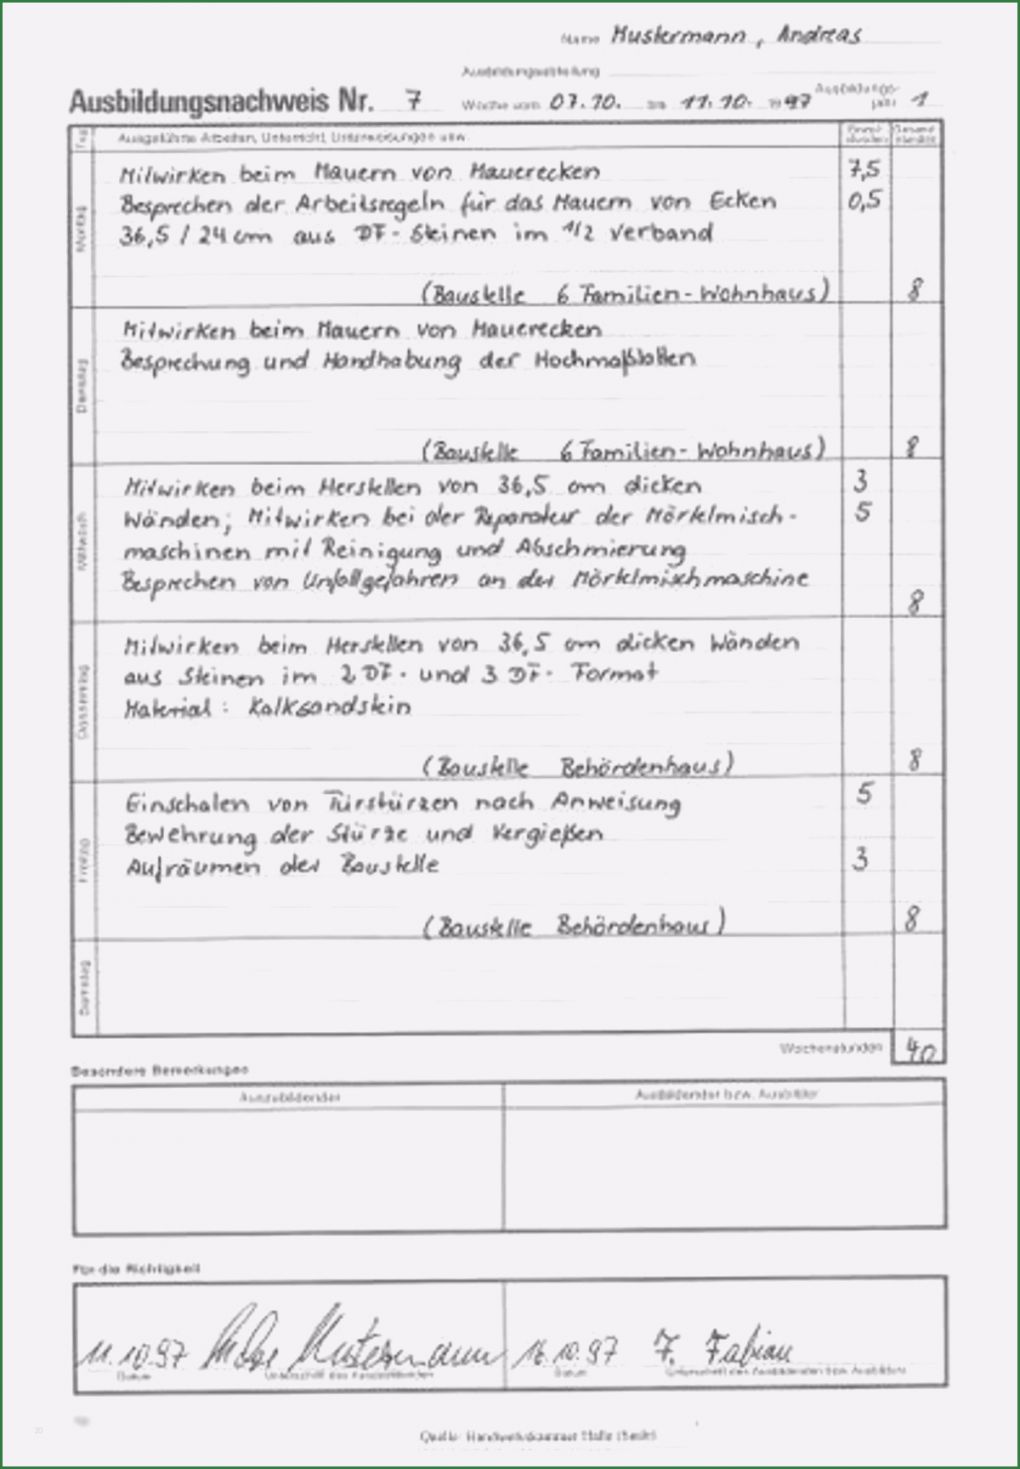 Name Mustermann, Andreas
Ausbildungsabteilung
Ausbildungsnachweis Nr. 7 Woche vom 07.10. bis 11.10. 1997 Ausbildungs-
jahr 1
Tag Ausgeführte Arbeiten, Unterricht, Unterweisungen usw. Einzel-
stunden Gesamt-
stunden
Montag
Mitwirken beim Mauern von Mauerecken 7,5
Besprechen der Arbeitsregeln für das Mauern von Ecken 0,5
36,5 / 24 cm aus DF-Steinen im 1/2 Verband
(Baustelle 6 Familien-Wohnhaus) 8
Dienstag
Mitwirken beim Mauern von Mauerecken
Besprechung und Handhabung der Hochmaßlatten
(Baustelle 6 Familien-Wohnhaus) 8
Mittwoch
Mitwirken beim Herstellen von 36,5 cm dicken 3
Wänden; Mitwirken bei der Reparatur der Mörtelmisch- 5
maschinen mit Reinigung und Abschmierung
Besprechen von Unfallgefahren an der Mörtelmischmaschine
8
Donnerstag
Mitwirken beim Herstellen von 36,5 cm dicken Wänden
aus Steinen im 2 DF- und 3 DF- Format
Material: Kalksandstein
(Baustelle Behördenhaus) 8
Freitag
Einschalen von Türstürzen nach Anweisung 5
Bewehrung der Stürze und Vergießen
Aufräumen der Baustelle 3
(Baustelle Behördenhaus) 8
Samstag
Wochenstunden 40
Besondere Bemerkungen
Auszubildender Ausbildender bzw. Ausbilder
Für die Richtigkeit
11.10.97 Mustermann 16.10.97 F. Fabian
Datum Unterschrift des Auszubildenden Datum Unterschrift des Ausbildenden bzw. Ausbilders
Quelle: Handwerkskammer Halle (Saale)